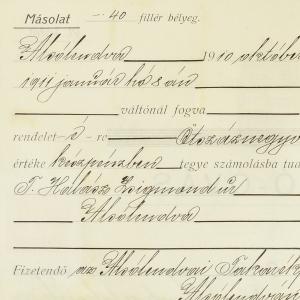 Másolat 40 fillér bélyeg.
Alsólendva 1910 október
1911 január hó 8 án
váltónál fogva
rendelet-é -re Ötszáznegyv
értéke készpénzben tegye számolásba tud
T. Halász Zsigmond úr
Alsólendva
Fizetendő az Alsólendvai Takarék
Alsólendván